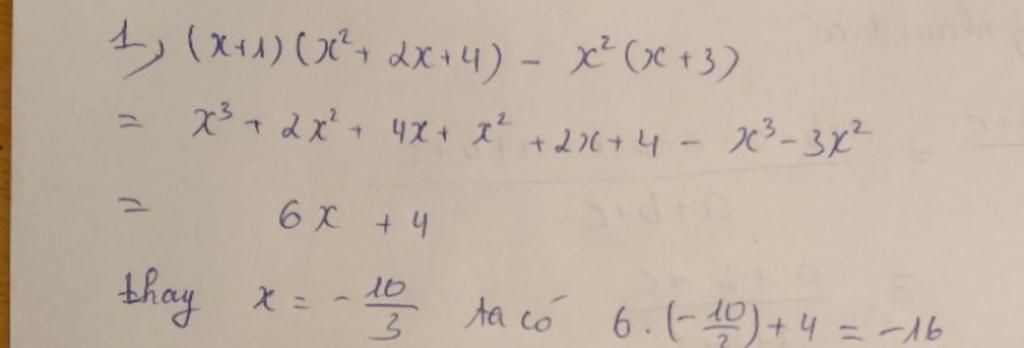 1, (x+1)(x² + 2x+4) - x²(x+3)
= x³ + 2x² + 4x + x² + 2x + 4 - x³ - 3x²
= 6x + 4
thay x = - 10/3 ta có 6.(-10/3) + 4 = -16